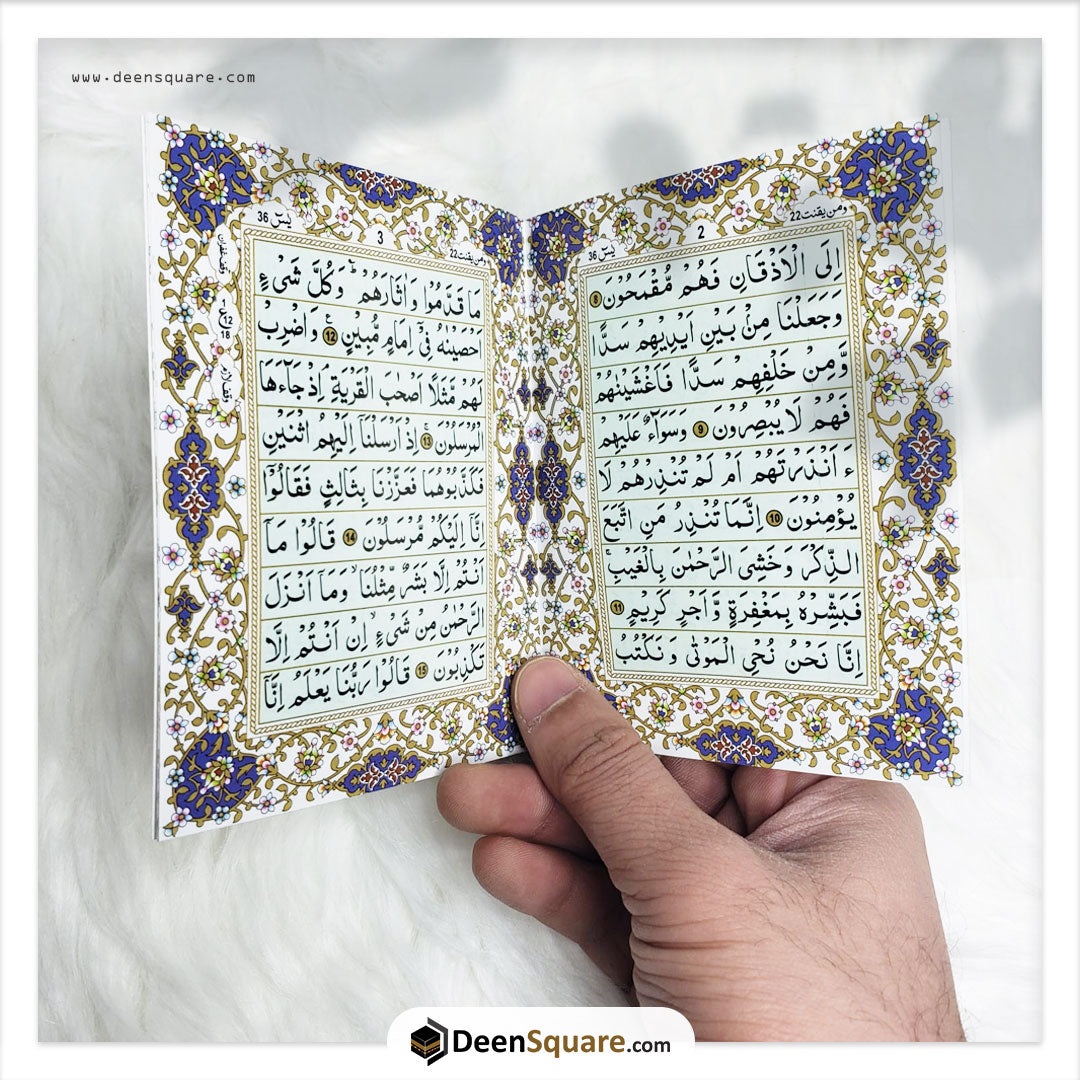 www.deensquare.com
ومن يقنت 22
2
يٰسٓ 36
اِلَى الْاَذْقَانِ فَهُمْ مُّقْمَحُوْنَ 8
وَجَعَلْنَا مِنْۢ بَيْنِ اَيْدِيْهِمْ سَدًّا
وَّمِنْ خَلْفِهِمْ سَدًّا فَاَغْشَيْنٰهُمْ
فَهُمْ لَا يُبْصِرُوْنَ 9 وَسَوَآءٌ عَلَيْهِمْ
ءَاَنْذَرْتَهُمْ اَمْ لَمْ تُنْذِرْهُمْ لَا
يُؤْمِنُوْنَ 10 اِنَّمَا تُنْذِرُ مَنِ اتَّبَعَ
الذِّكْرَ وَخَشِيَ الرَّحْمٰنَ بِالْغَيْبِ ۚ
فَبَشِّرْهُ بِمَغْفِرَةٍ وَّاَجْرٍ كَرِيْمٍ 11
اِنَّا نَحْنُ نُحْيِ الْمَوْتٰى وَنَكْتُبُ
ومن يقنت 22
3
يٰسٓ 36
مَا قَدَّمُوْا وَاٰثَارَهُمْ ؕ وَكُلَّ شَيْءٍ
اَحْصَيْنٰهُ فِيْۤ اِمَامٍ مُّبِيْنٍ 12 وَاضْرِبْ
لَهُمْ مَّثَلًا اَصْحٰبَ الْقَرْيَةِ ۘ اِذْ جَآءَهَا
الْمُرْسَلُوْنَ 13 اِذْ اَرْسَلْنَاۤ اِلَيْهِمُ اثْنَيْنِ
فَكَذَّبُوْهُمَا فَعَزَّزْنَا بِثَالِثٍ فَقَالُوْۤا
اِنَّاۤ اِلَيْكُمْ مُّرْسَلُوْنَ 14 قَالُوْا مَاۤ
اَنْتُمْ اِلَّا بَشَرٌ مِّثْلُنَا ۙ وَمَاۤ اَنْزَلَ
الرَّحْمٰنُ مِنْ شَيْءٍ ۙ اِنْ اَنْتُمْ اِلَّا
تَكْذِبُوْنَ 15 قَالُوْا رَبُّنَا يَعْلَمُ اِنَّاۤ
1
12
18
DeenSquare.com